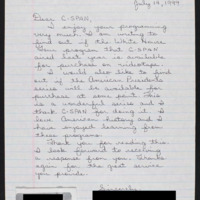 July 19, 1999
Dear C-SPAN,
I enjoy your programming
very much. I am writing to
find out if the White House
Tour program that C-SPAN
aired last year is available
for purchase on videotape.
I would also like to find
out if the American Presidents
series will be available for
purchase at some point. This
is a wonderful series and I
thank C-SPAN for doing it. I
love American history and I
have enjoyed learning from
these programs.
Thank you for reading this.
I look forward to receiving
a response from you. Thanks
again for the great service
you provide.
Sincerely,